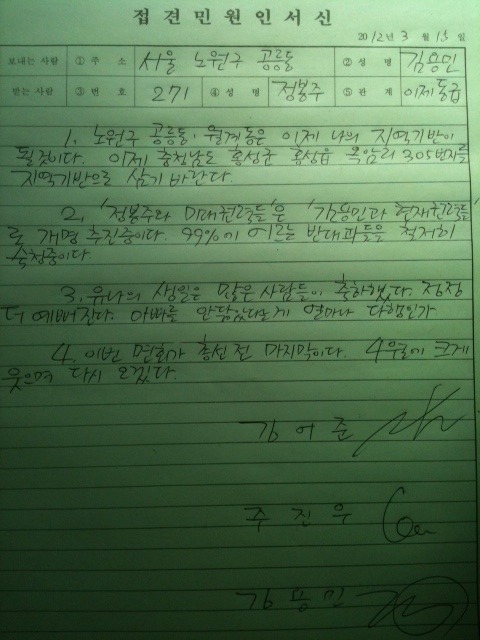 접견민원인서신
2012년 3월 15일
보내는 사람 ① 주소 서울 노원구 공릉동 ② 성명 김용민
받는 사람 ③ 번호 271 ④ 성명 정봉주 ⑤ 관계 이제 동급
1. 노원구 공릉동·월계동은 이제 나의 지역기반이
될것이다. 이제 충청남도 홍성군 홍성읍 옥암리 305번지를
지역기반으로 삼기 바란다.
2. '정봉주와 미래권력들'은 '김용민과 현재권력들'
로 개명 추진중이다. 99%에 이르는 반대파들을 철저히
숙청중이다.
3. 유나의 생일은 많은 사람들이 축하했다. 점점
더 예뻐진다. 아빠를 안닮았다는게 얼마나 다행인가
4. 이번 면회가 총선 전 마지막이다. 4월에 크게
웃으며 다시 오겠다.
김어준
주진우
김용민